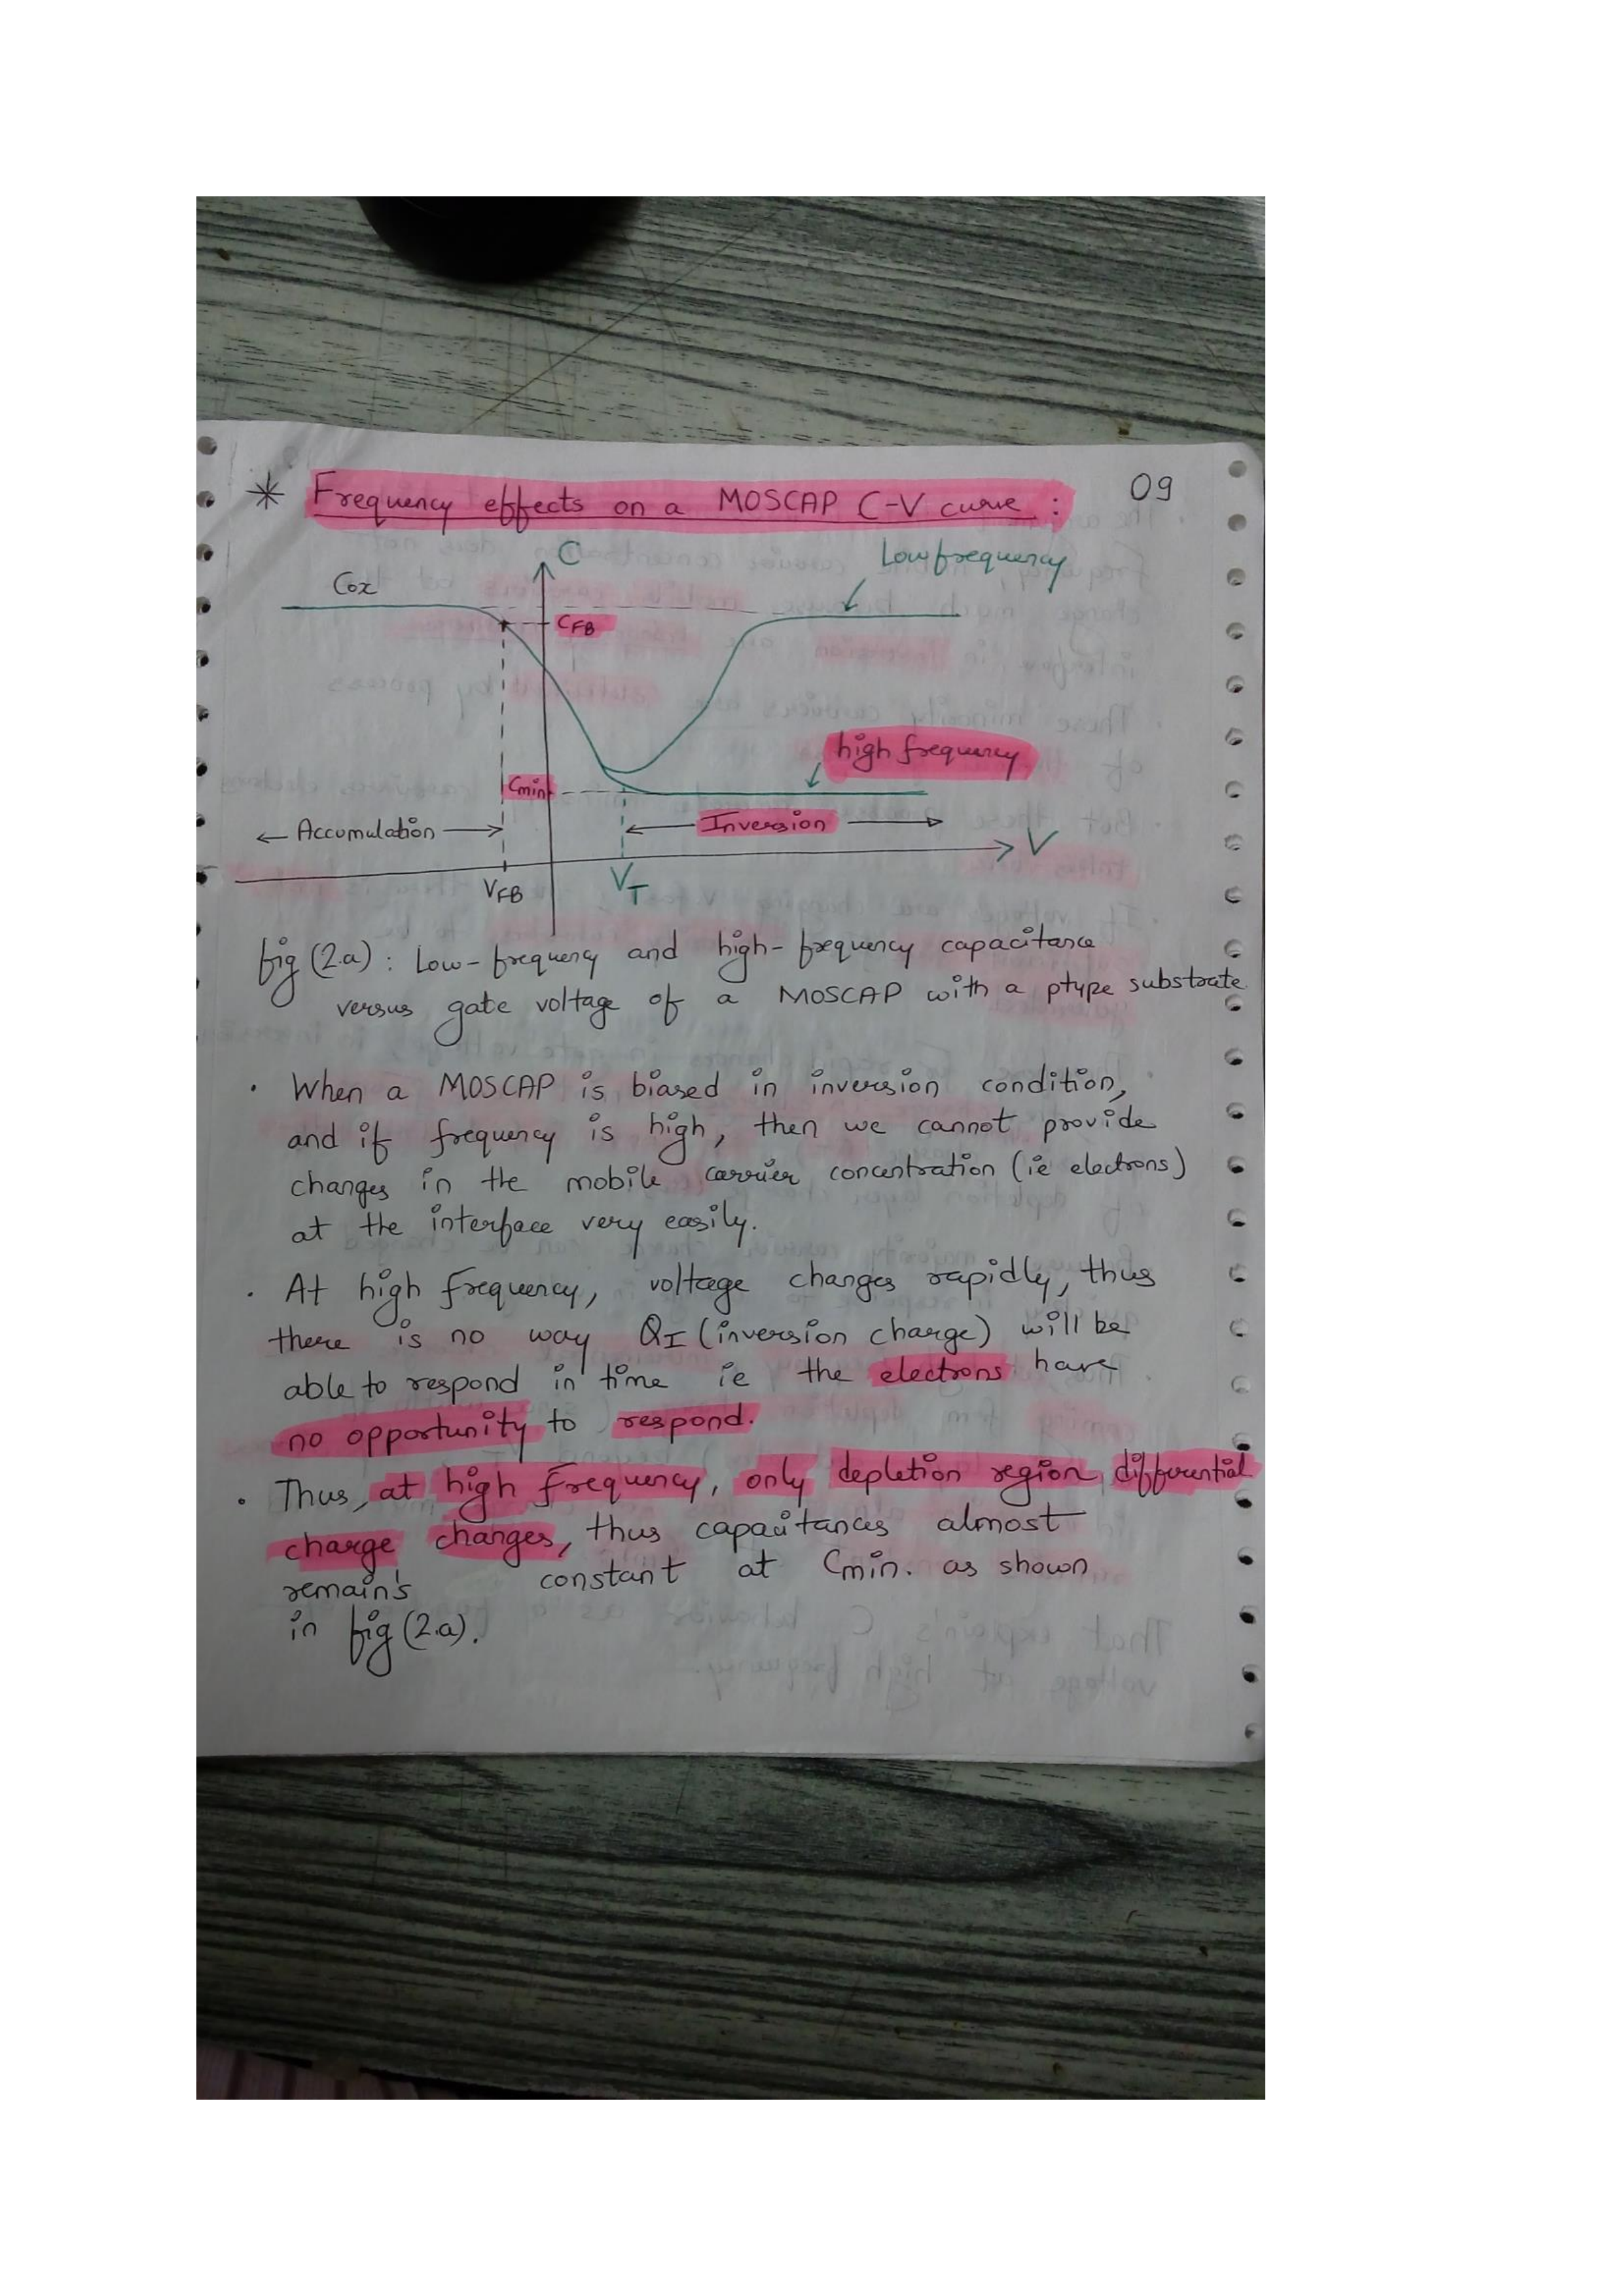 * Frequency effects on a MOSCAP C-V curve : 09
C
Low frequency
Cox
CFB
high frequency
Cmin
← Accumulation →
← Inversion →
V
VFB
VT
fig (2.a) : Low-frequency and high-frequency capacitance
versus gate voltage of a MOSCAP with a ptype substrate
. When a MOSCAP is biased in inversion condition,
and if frequency is high, then we cannot provide
changes in the mobile carrier concentration (ie electrons)
at the interface very easily.
. At high frequency, voltage changes rapidly, thus
there is no way QI (inversion charge) will be
able to respond in time ie the electrons have
no opportunity to respond.
. Thus, at high frequency, only depletion region differential
charge changes, thus capacitances almost
remain's constant at Cmin. as shown
in fig (2.a).